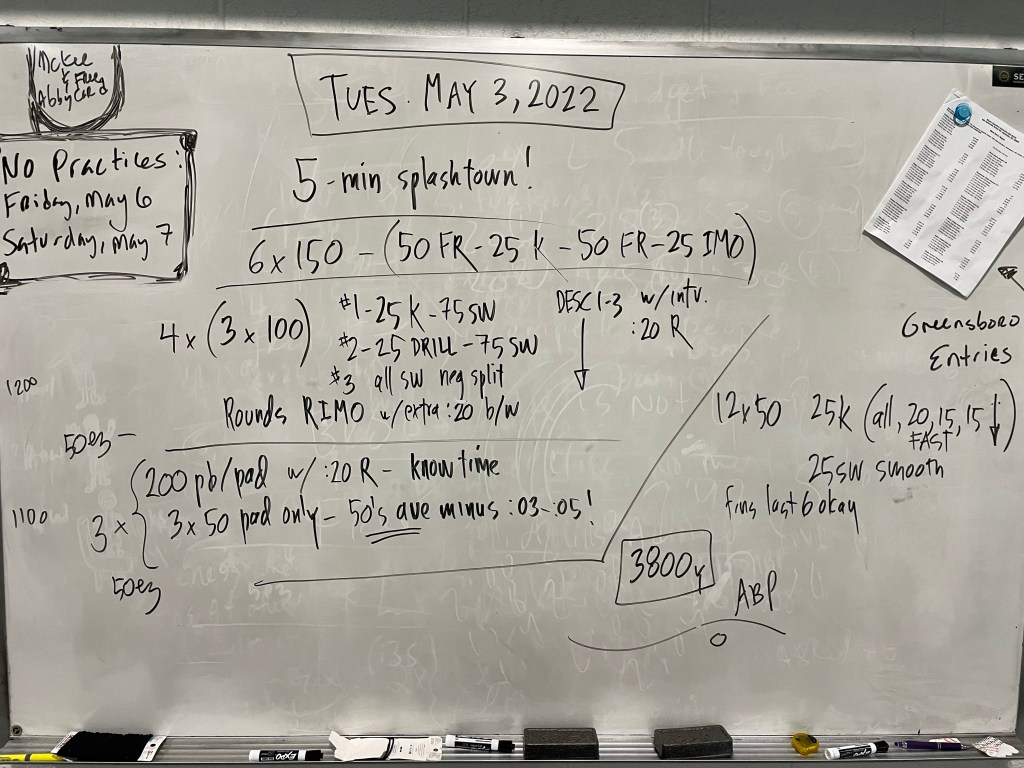 McKee
& Fney
Abby Card
No Practices:
Friday, May 6
Saturday, May 7
TUES. MAY 3, 2022
5-min splashtown!
6 x 150 - (50 FR - 25 K - 50 FR - 25 IMO)
4 x (3 x 100)
#1 - 25 K - 75 SW
#2 - 25 DRILL - 75 SW
#3 all sw neg split
DESC 1-3 w/intv.
:20 R
Rounds RIMO w/extra :20 b/w
1200
50ez -
200 pb/pad w/ :20 R - know time
1100
3 x
3 x 50 pad only - 50's ave minus :03-:05!
50ez
12x50 25K (all, 20, 15, 15 ↓)
FAST
25 sw smooth
fins last 6 okay
3800y
ABP
Greensboro
Entries
EXPO